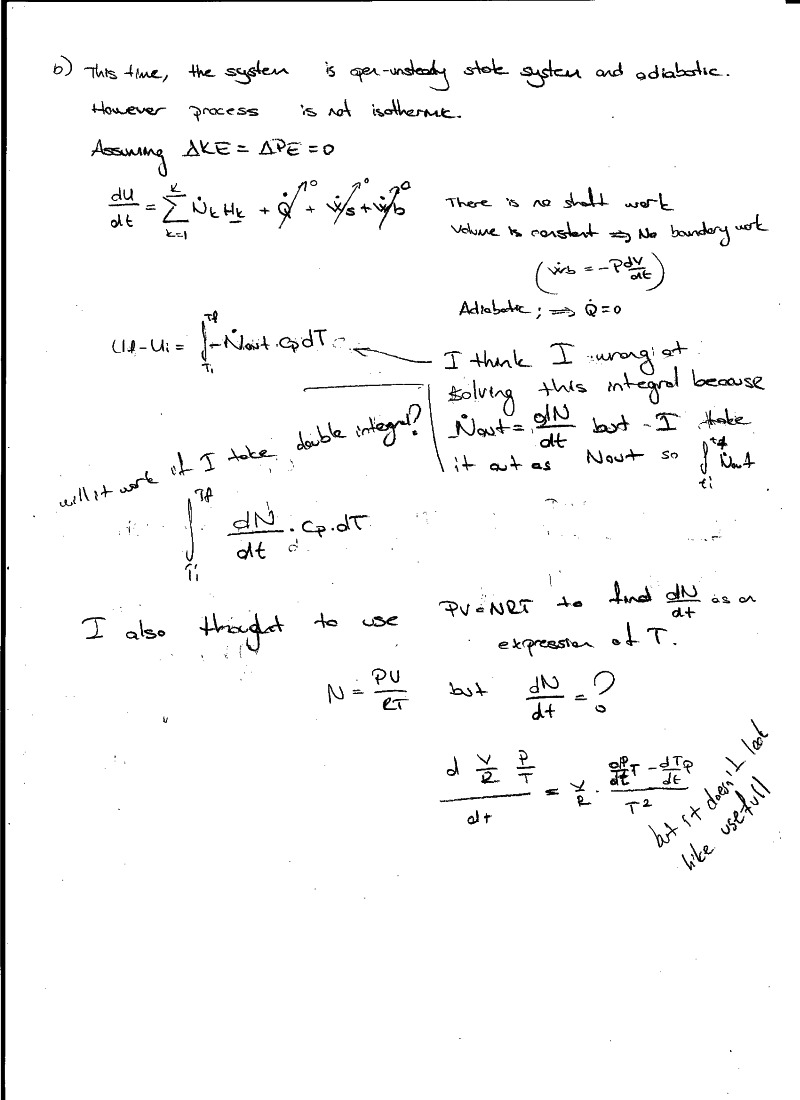 b) This time, the system is open-unsteady state system and adiabatic.
However process is not isothermic.
Assuming ΔKE = ΔPE = 0
dU/dt = Σ_{k=1}^{K} Ṅk Hk + Q̇↗0 + Ẇs↗0 + Ẇb↗0
There is no shaft work
Volume is constant ⇒ No boundary work
(Ẇb = -P dV/dt)
Adiabatic; ⇒ Q̇=0
Uf-Ui = ∫_{Ti}^{Tf} -Ṅout . Cp dT
I think I wrong at
solving this integral because
Ṅout = dN/dt but I take
it out as Nout so ∫_{ti}^{tf} Ṅout
will it work if I take double integral?
∫_{Ti}^{Tf} dN/dt . Cp . dT
I also thought to use PV=NRT to find dN/dt as an
expression of T.
N = PV/RT but dN/dt = ?
d V/R P/T / dt = V/R . (dP/dt T - dT/dt P) / T²
but it doesn't look
like usefull